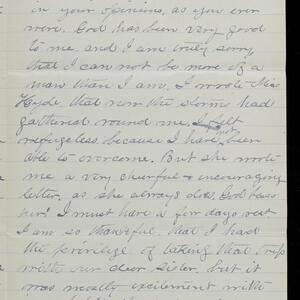 in your opinions, as you ever
were. God has been very good
to me and I am truly sorry,
that I can not be more of a
man than I am. I wrote Miss
Hyde, that now the storms had
gathered round me, I felt
refugeless, because I have not been
able to overcome. But she wrote
me a very cheerful & encouraging
letter, as she always does, God bless
her! I must have a few days rest
I am so thankful, that I had
the privilege of taking that trip
with our dear sister, but it
was mostly excitement with